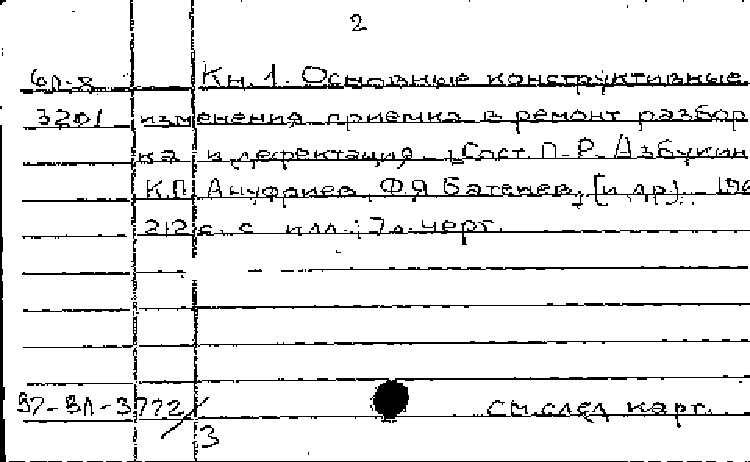 2
6Л-8 Кн. 1. Основные конструктивные
3201 изменения приемка в ремонт разбор
ка и дефектация. Сост. П. Р. Азбукин
К.П. Ануфриев, Ф.Я Батенев, [и др].
212 с. с илл.; 7 л. черт.
37-ВЛ-3772/3 см. след карт.